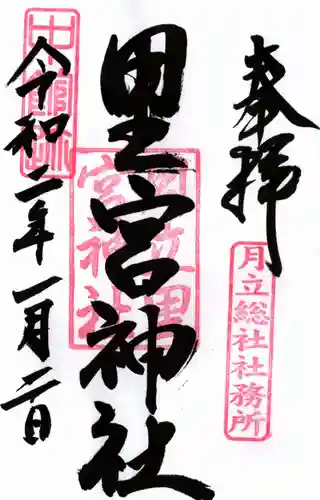 奉拝
月立総社社務所
里宮神社
令和二年一月二日